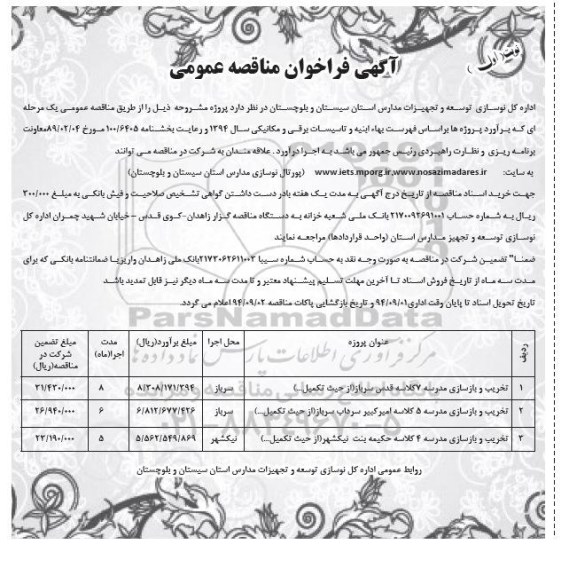 نوبت اول
آگهی فراخوان مناقصه عمومی
اداره کل نوسازی توسعه و تجهیزات مدارس استان سیستان و بلوچستان در نظر دارد پروژه مشروحه ذیل را از طریق مناقصه عمومی یک مرحله
ای که برآورد پروژه ها براساس فهرست بهاء ابنیه و تاسیسات برقی و مکانیکی سال ۱۳۹۴ و رعایت بخشنامه ۱۰۰/۶۴۰۵ مورخ ۸۹/۰۲/۰۴معاونت
برنامه ریزی و نظارت راهبردی رئیس جمهور می باشد به اجرا درآورد. علاقه مندان به شرکت در مناقصه می توانند
به سایت: www.iets.mporg.ir,www.nosazimadares.ir (پورتال نوسازی مدارس استان سیستان و بلوچستان)
جهت خرید اسناد مناقصه از تاریخ درج آگهی به مدت یک هفته بادر دست داشتن گواهی تشخیص صلاحیت و فیش بانکی به مبلغ ۳۰۰/۰۰۰
ریال به شماره حساب ۲۱۷۰۰۹۲۶۹۱۰۰۱ بانک ملی شعبه خزانه به دستگاه مناقصه گزار زاهدان-کوی قدس – خیابان شهید چمران اداره کل
نوسازی توسعه و تجهیز مدارس استان (واحد قراردادها) مراجعه نمایند
ضمنا" تضمین شرکت در مناقصه به صورت وجه نقد به حساب شماره سیبا ۲۱۷۳۰۶۲۶۱۱۰۰۲بانک ملی زاهدان واریزیا ضمانتنامه بانکی که برای
مدت سه ماه از تاریخ فروش اسناد تا آخرین مهلت تسلیم پیشنهاد معتبر و تا مدت سه ماه دیگر نیز قابل تمدید باشد
تاریخ تحویل اسناد تا پایان وقت اداری۹۴/۰۹/۰۱ و تاریخ بازگشایی پاکات مناقصه ۹۴/۰۹/۰۲اعلام می گردد.
ردیف عنوان پروژه محل اجرا مبلغ برآورد(ریال) مدت اجرا(ماه) مبلغ تضمین شرکت در مناقصه(ریال)
۱ تخریب و بازسازی مدرسه ۷کلاسه قدس سرباز(از حیث تکمیل...) سرباز ۸/۳۰۸/۱۷۱/۲۹۴ ۸ ۳۱/۴۳۰/۰۰۰
۲ تخریب و بازسازی مدرسه ۵ کلاسه امیرکبیر سرداب سرباز(از حیث تکمیل...) سرباز ۶/۸۱۲/۶۷۷/۴۲۶ ۶ ۲۶/۹۴۰/۰۰۰
۳ تخریب و بازسازی مدرسه ۴ کلاسه حکیمه بنت نیکشهر(از حیث تکمیل...) نیکشهر ۵/۵۶۲/۵۴۹/۸۶۹ ۵ ۲۳/۱۹۰/۰۰۰
روابط عمومی اداره کل نوسازی توسعه و تجهیزات مدارس استان سیستان و بلوچستان
ParsNamadData
مرکز فرآوری اطلاعات پارس نماد داده ها
۰۲۱-۸۸۳۴۹۶۷۰-۵